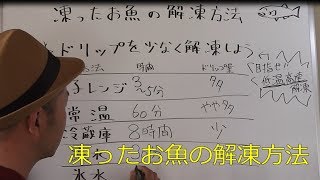 凍ったお魚の解凍方法
ドリップを少なく解凍しよう
法 時間 ドリップ量
子レンジ 3〜5分 多
常温 60分 やや多
冷蔵庫 8時間 少
氷水
目指せ
低温高速
解凍
凍ったお魚の解凍方法